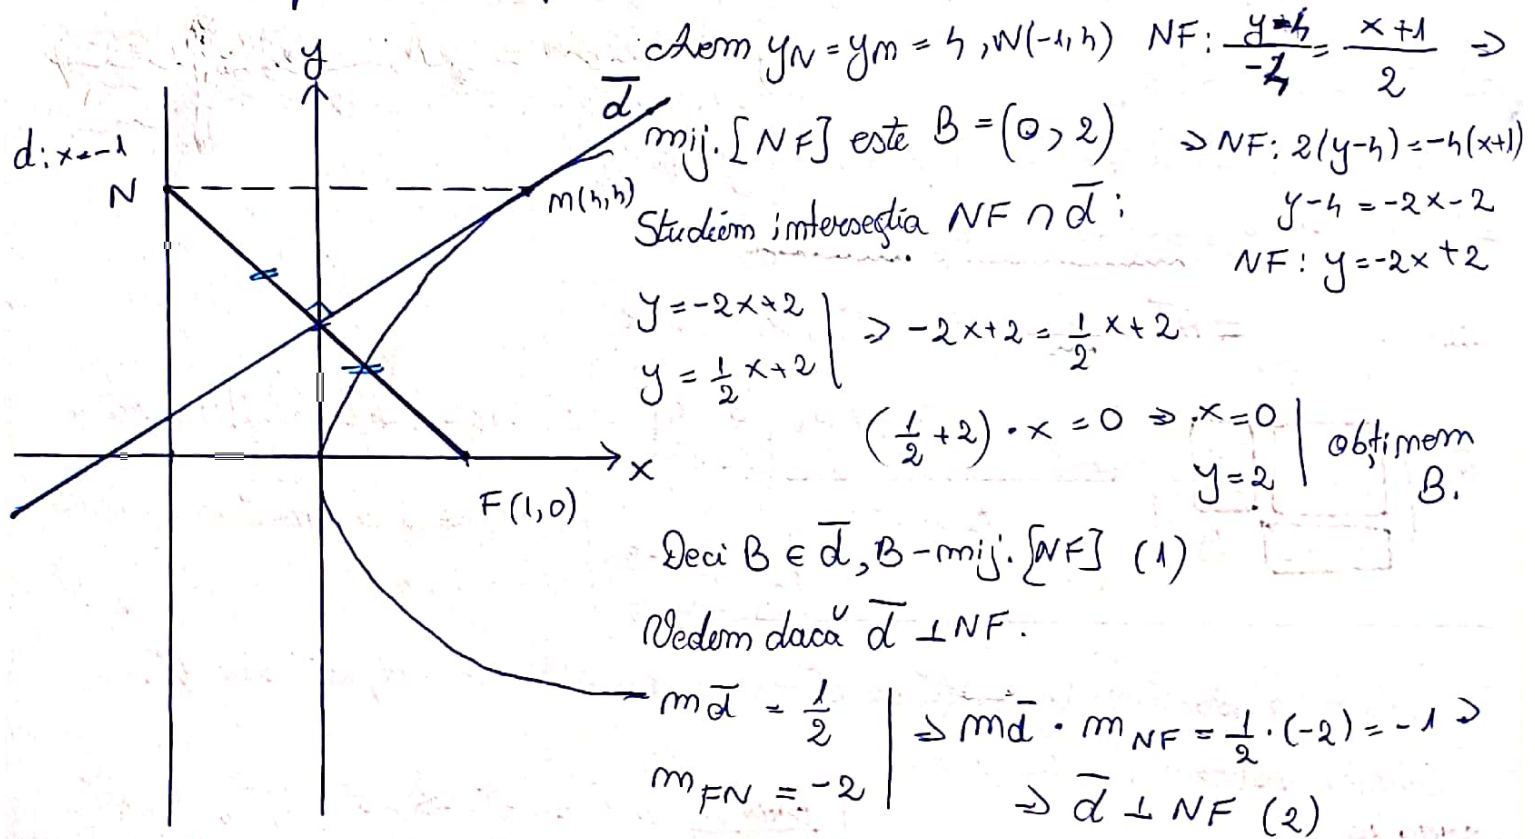 y
d̅
d: x=-1
N
M(4,4)
x
F(1,0)
Avem y_N = y_M = 4, N(-1,4) NF: (y-4)/(-4) = (x+1)/2 ⇒
mij. [NF] este B = (0,2) ⇒ NF: 2(y-4) = -4(x+1)
y-4 = -2x-2
Studiem intersecția NF ∩ d̅ :
NF: y = -2x+2
y = -2x+2 | ⇒ -2x+2 = 1/2 x+2
y = 1/2 x+2
(1/2+2)·x = 0 ⇒ x=0 | obținem
y=2 | B.
Deci B ∈ d̅, B-mij. [NF] (1)
Vedem dacă d̅ ⊥ NF.
m_d̅ = 1/2 | ⇒ m_d̅ · m_NF = 1/2·(-2) = -1 ⇒
m_FN = -2
⇒ d̅ ⊥ NF (2)